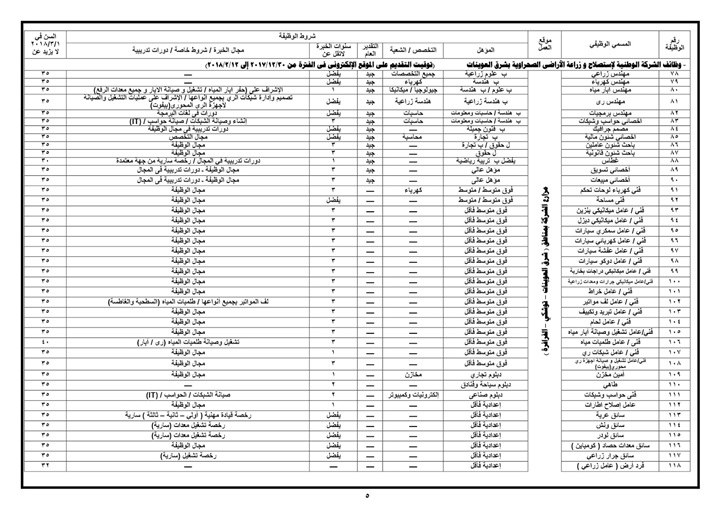 رقم الوظيفة | المسمي الوظيفي | موقع العمل | شروط الوظيفة | السن في ٢٠١٨/٣/١ لا يزيد عن
المؤهل | التخصص / الشعبة | التقدير العام | سنوات الخبرة لاتقل عن | مجال الخبرة / شروط خاصة / دورات تدريبية
- وظائف الشركة الوطنية لإستصلاح و زراعة الأراضى الصحراوية بشرق العوينات (توقيت التقديم على الموقع الإلكترونى فى الفترة من ٢٠١٧/١٢/٣٠ إلى ٢٠١٨/٢/١٢)
مزارع الشركة بمناطق ( شرق العوينات - توشكي - الفرافرة )
٧٨ | مهندس زراعي | ب علوم زراعية | جميع التخصصات | جيد | يفضل | — | ٣٥
٧٩ | مهندس كهرباء | ب هندسة | كهرباء | جيد | يفضل | — | ٣٥
٨٠ | مهندس أبار مياه | ب علوم / ب هندسة | جيولوجيا / ميكانيكا | جيد | ١ | الاشراف على (حفر ابار المياه / تشغيل و صيانة الابار و جميع معدات الرفع) | ٣٥
٨١ | مهندس رى | ب هندسة زراعية | هندسة زراعية | جيد | يفضل | تصميم وإدارة شبكات الري بجميع انواعها / الاشراف على عمليات التشغيل والصيانة لاجهزة الرى المحورى(بيفوت) | ٣٥
٨٢ | مهندس برمجيات | ب هندسة / حاسبات ومعلومات | حاسبات | جيد | يفضل | دورات فى لغات البرمجة | ٣٥
٨٣ | اخصائي حواسب وشبكات | ب هندسة / حاسبات ومعلومات | حاسبات | جيد | ٣ | انشاء وصيانة الشبكات / صيانة حواسب / (IT) | ٣٥
٨٤ | مصمم جرافيك | ب فنون جميلة | — | جيد | يفضل | دورات تدريبية فى مجال الوظيفة | ٣٥
٨٥ | اخصائي شئون مالية | ب تجارة | محاسبة | جيد | يفضل | مجال التخصص | ٣٥
٨٦ | باحث شئون عاملين | ل حقوق / ب تجارة | — | جيد | ٣ | مجال الوظيفة | ٣٥
٨٧ | باحث شئون قانونية | ل حقوق | — | جيد | ٣ | مجال الوظيفة | ٣٥
٨٨ | غطاس | يفضل ب تربية رياضية | — | جيد | ١ | دورات تدريبية فى المجال / رخصة سارية من جهة معتمدة | ٣٠
٨٩ | اخصائي تسويق | مؤهل عالي | — | جيد | ٣ | مجال الوظيفة ، دورات تدريبية فى المجال | ٣٥
٩٠ | اخصائي مبيعات | مؤهل عالي | — | جيد | ٣ | مجال الوظيفة ، دورات تدريبية فى المجال | ٣٥
٩١ | فني كهرباء لوحات تحكم | فوق متوسط / متوسط | كهرباء | — | ٣ | مجال الوظيفة | ٣٥
٩٢ | فني مساحة | فوق متوسط / متوسط | — | — | يفضل | مجال الوظيفة | ٣٥
٩٣ | فني / عامل ميكانيكي بنزين | فوق متوسط فأقل | — | — | ٣ | مجال الوظيفة | ٣٥
٩٤ | فني / عامل ميكانيكي ديزل | فوق متوسط فأقل | — | — | ٣ | مجال الوظيفة | ٣٥
٩٥ | فني / عامل سمكري سيارات | فوق متوسط فأقل | — | — | ٣ | مجال الوظيفة | ٣٥
٩٦ | فني / عامل كهربائي سيارات | فوق متوسط فأقل | — | — | ٣ | مجال الوظيفة | ٣٥
٩٧ | فني / عامل عفشة سيارات | فوق متوسط فأقل | — | — | ٣ | مجال الوظيفة | ٣٥
٩٨ | فني / عامل دوكو سيارات | فوق متوسط فأقل | — | — | ٣ | مجال الوظيفة | ٣٥
٩٩ | فني / عامل ميكانيكي دراجات بخارية | فوق متوسط فأقل | — | — | ٣ | مجال الوظيفة | ٣٥
١٠٠ | فني/عامل ميكانيكي جرارات ومعدات زراعية | فوق متوسط فأقل | — | — | ٣ | مجال الوظيفة | ٣٥
١٠١ | فني / عامل خراط | فوق متوسط فأقل | — | — | ٣ | مجال الوظيفة | ٣٥
١٠٢ | فني / عامل لف مواتير | فوق متوسط فأقل | — | — | ٣ | لف المواتير بجميع أنواعها / طلمبات المياه (السطحية والغاطسة) | ٣٥
١٠٣ | فني / عامل تبريد وتكييف | فوق متوسط فأقل | — | — | ٣ | مجال الوظيفة | ٣٥
١٠٤ | فني / عامل لحام | فوق متوسط فأقل | — | — | ٣ | مجال الوظيفة | ٣٥
١٠٥ | فني/عامل تشغيل وصيانة أبار مياه | فوق متوسط فأقل | — | — | ٣ | مجال الوظيفة | ٣٥
١٠٦ | فني / عامل طلمبات مياه | فوق متوسط فأقل | — | — | ٣ | تشغيل وصيانة طلمبات المياه (رى / أبار) | ٤٠
١٠٧ | فني / عامل شبكات رى | فوق متوسط فأقل | — | — | ١ | مجال الوظيفة | ٣٥
١٠٨ | فني/عامل تشغيل و صيانة اجهزة رى محورى(بيفوت) | فوق متوسط فأقل | — | — | ٣ | مجال الوظيفة | ٣٥
١٠٩ | أمين مخزن | دبلوم تجاري | مخازن | — | ١ | مجال الوظيفة | ٣٥
١١٠ | طاهي | دبلوم سياحة وفنادق | — | — | ٢ | — | ٣٥
١١١ | فني حواسب وشبكات | دبلوم صناعي | إلكترونيات وكمبيوتر | — | ٢ | صيانة الشبكات / الحواسب / (IT) | ٣٥
١١٢ | عامل اصلاح اطارات | إعدادية فأقل | — | — | ١ | مجال الوظيفة | ٣٥
١١٣ | سائق عربة | إعدادية فأقل | — | — | يفضل | رخصة قيادة مهنية ( أولي - ثانية - ثالثة ) سارية | ٣٥
١١٤ | سائق ونش | إعدادية فأقل | — | — | يفضل | رخصة تشغيل معدات (سارية) | ٣٥
١١٥ | سائق لودر | إعدادية فأقل | — | — | يفضل | رخصة تشغيل معدات (سارية) | ٣٥
١١٦ | سائق معدات حصاد ( كومباين ) | إعدادية فأقل | — | — | يفضل | مجال الوظيفة | ٣٥
١١٧ | سائق جرار زراعي | إعدادية فأقل | — | — | يفضل | رخصة تشغيل (سارية) | ٣٥
١١٨ | فرد أرض ( عامل زراعي ) | إعدادية فأقل | — | — | — | — | ٣٢
٥